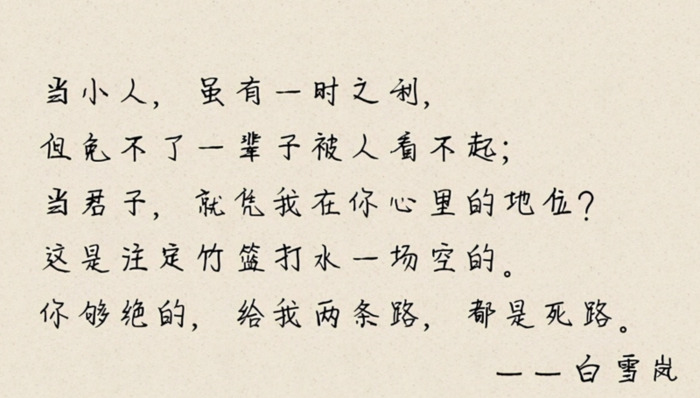 当小人，虽有一时之利，
但免不了一辈子被人看不起；
当君子，就凭我在你心里的地位？
这是注定竹篮打水一场空的。
你够绝的，给我两条路，都是死路。
——白雪岚